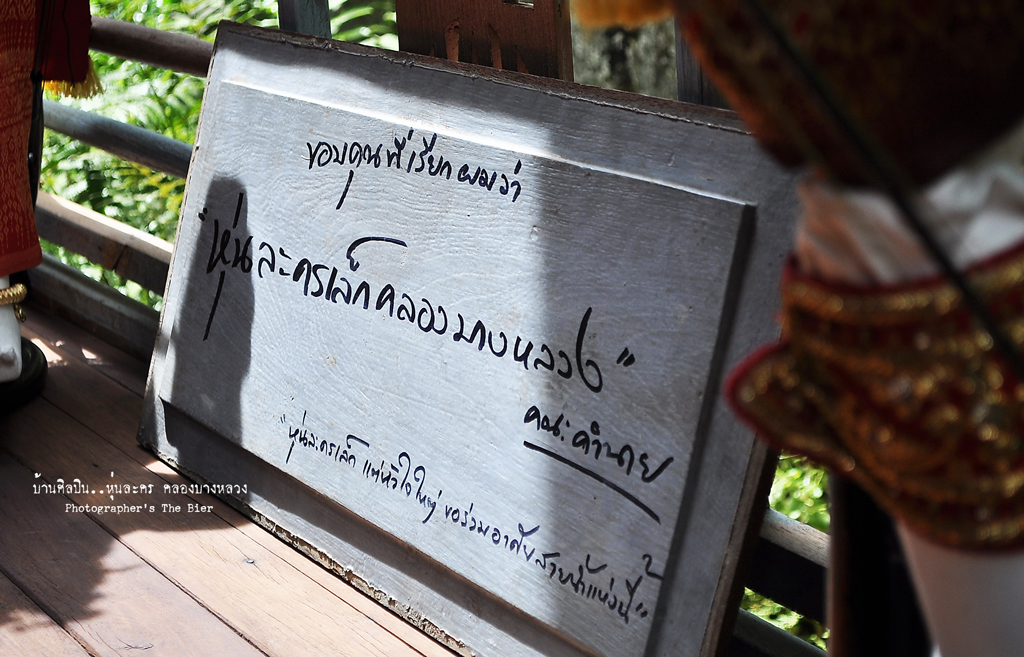 ขอบคุณที่เรียกผมว่า
"หุ่นละครเล็กคลองบางหลวง"
คณะคำนาย
"หุ่นละครเล็ก แต่หัวใจใหญ่ ขอร่วมอาศัยสายน้ำแห่งนี้"
บ้านศิลปิน..หุ่นละคร คลองบางหลวง
Photographer's The Bier